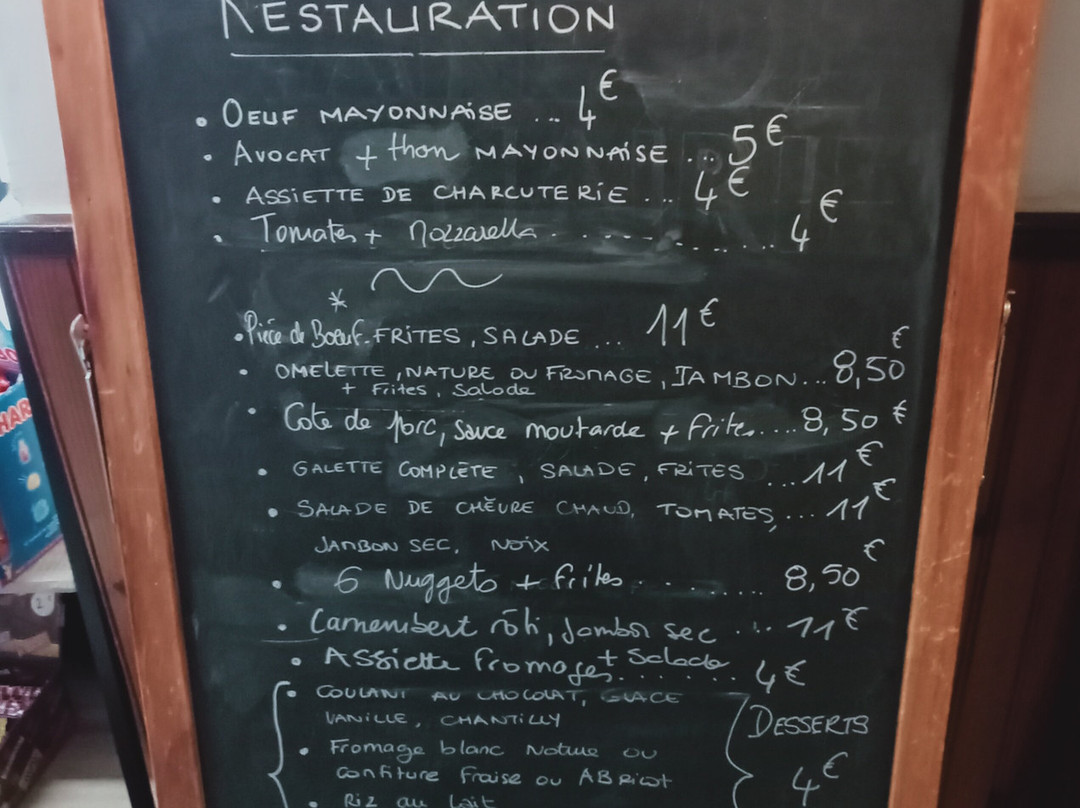 RESTAURATION
• OEUF MAYONNAISE ... 4€
• AVOCAT + thon MAYONNAISE ... 5€
• ASSIETTE DE CHARCUTERIE ... 4€
• Tomates + Mozzarella ............ 4€
*
• Pièce de Boeuf. FRITES, SALADE ... 11€
• OMELETTE, NATURE OU FROMAGE, JAMBON... 8,50€
+ Frites, Salade
• Cote de porc, sauce moutarde + frites.... 8,50€
• GALETTE COMPLÈTE, SALADE, FRITES ... 11€
• SALADE DE CHÈVRE CHAUD, TOMATES, ... 11€
JAMBON SEC, NOIX
• 6 Nuggets + frites ........ 8,50€
• Camembert rôti, Jambon sec ... 11€
• Assiette fromages + Salade ....... 4€
• COULANT AU CHOCOLAT, GLACE
VANILLE, CHANTILLY
• Fromage blanc Nature ou
confiture fraise ou ABRicot
• Riz au lait
DESSERTS
4€
HAR